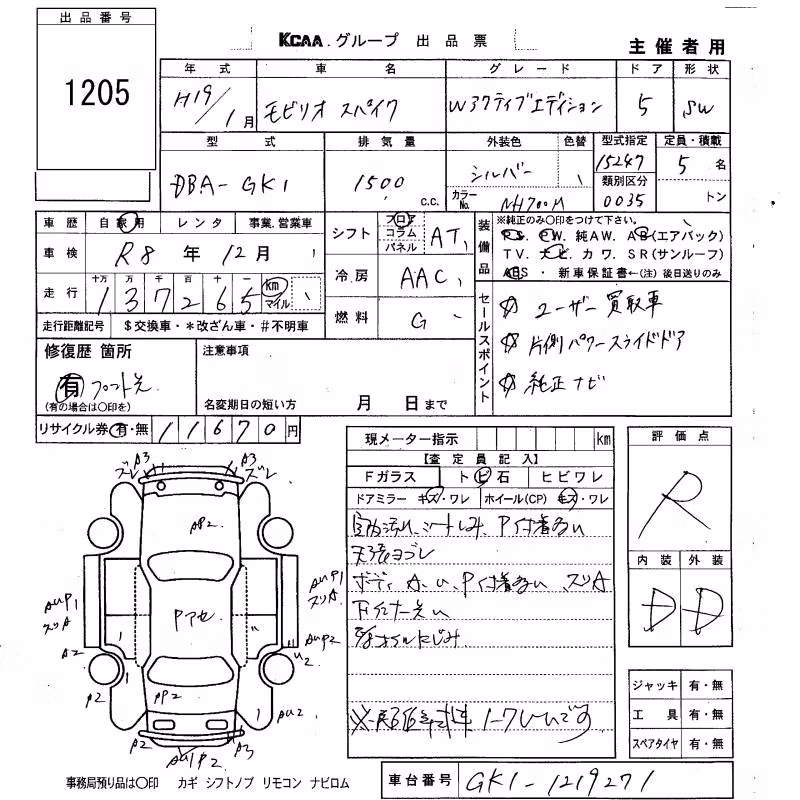 出品番号
1205
KCAA グループ 出品票
主催者用
年式 車名 グレード ドア 形状
H19/1月 モビリオ スパイク Wアクティブエディション 5 SW
型式 排気量 外装色 色替 型式指定 定員・積載
DBA-GK1 1500 c.c. シルバー 15247 5名
カラーNo. NH700M 類別区分 0035 トン
車歴 自家用 レンタ 事業.営業車
車検 R8年12月
走行 十万 万 千 百 十 一
137265 km マイル
走行距離記号 $交換車・*改ざん車・#不明車
シフト フロア コラム パネル AT
冷房 AAC
燃料 G
装備品
※純正のみ〇印をつけて下さい。
P.S. P.W. 純AW. AB(エアバック)
TV. ナビ カワ. SR(サンルーフ)
ABS ・ 新車保証書←(注) 後日送りのみ
セールスポイント
☆ ユーザー買取車
☆ 片側パワースライドドア
☆ 純正ナビ
修復歴 箇所
有
(有の場合は〇印を)
注意事項
名変期日の短い方 月 日まで
リサイクル券 有・無 11670円
現メーター指示 km
【査定員記入】
Fガラス トビ石 ヒビワレ
ドアミラー キズ・ワレ ホイール(CP) キズ・ワレ
室内汚れ、シートしみ、P付着多い
天張ヨゴレ
評価点
R
内装 外装
D D
ジャッキ 有・無
工具 有・無
スペアタイヤ 有・無
A3 ズレ
A3 ズレ
AP2
AUP1
ズリA
AUP1
ズリA
Pアセ
A2
AUP2
U2
A2
PP2
AU2
A2
AUP2
A3
事務局預り品は〇印 カギ シフトノブ リモコン ナビロム
車台番号 GK1-1219271